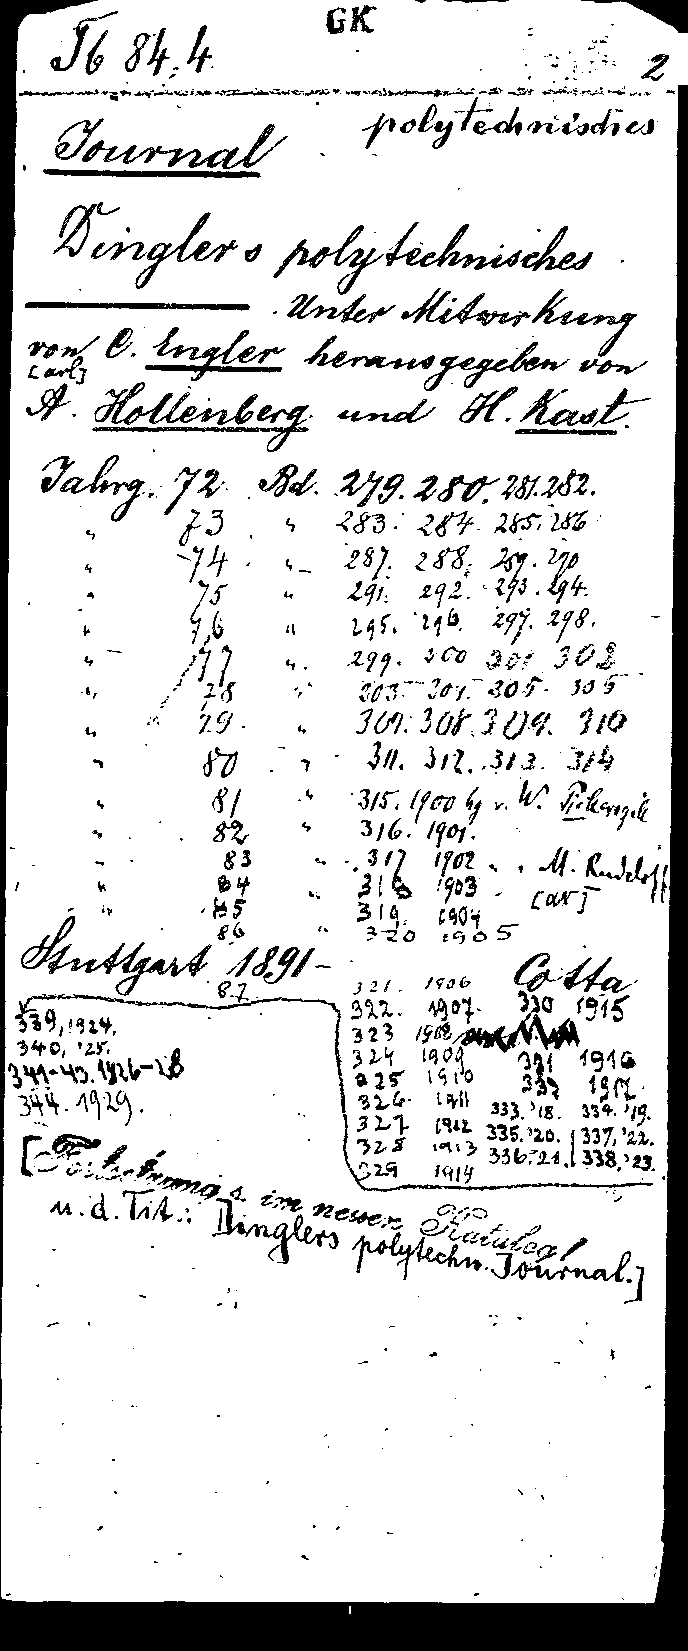 GK
Tb 84,4
2
polytechnisches
Journal
Dinglers polytechnisches
Unter Mitwirkung
von C. Engler herausgegeben von
[arl]
A. Hollenberg und H. Kast.
Jahrg. 72 Bd. 279. 280. 281. 282.
" 73 " 283. 284. 285. 286
" 74 " 287. 288. 289. 290
" 75 " 291. 292. 293. 294.
" 76 " 295. 296. 297. 298.
" 77 " 299. 300 301 302
" 78 " 303. 304. 305. 306
" 79 " 307. 308. 309. 310
" 80 " 311. 312. 313. 314
" 81 " 315. 1900 hg v. W.
" 82 " 316. 1901.
" 83 " 317 1902 " " M. Rudeloff
" 84 318 1903 " [ax]
" 85 319. 1904
86 " 320 1905
Stuttgart 1891- Cotta
87 321. 1906
322. 1907. 330 1915
323 1908
324 1909 331 1916
325 1910 332 1917.
326 1911 333. '18. 334. '19.
327 1912 335. '20. 337, '22.
328 1913 336. '21. 338, '23.
329 1914
339, 1924.
340, '25.
341-43. 1926-28
344. 1929.
[Fortsetzung s. im neuen Katalog!
u. d. Tit.: Dinglers polytechn. Journal.]